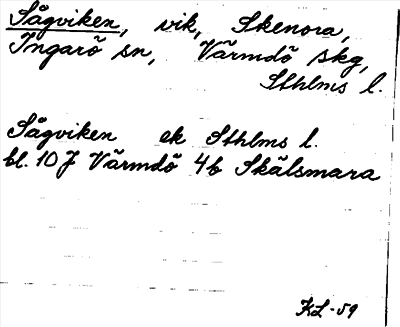 Sågviken, vik, Skenora,
Ingarö sn, Värmdö skg,
Sthlms l.
Sågviken ek Sthlms l.
bl. 10 J Värmdö 4b Skälsmara
KL-59